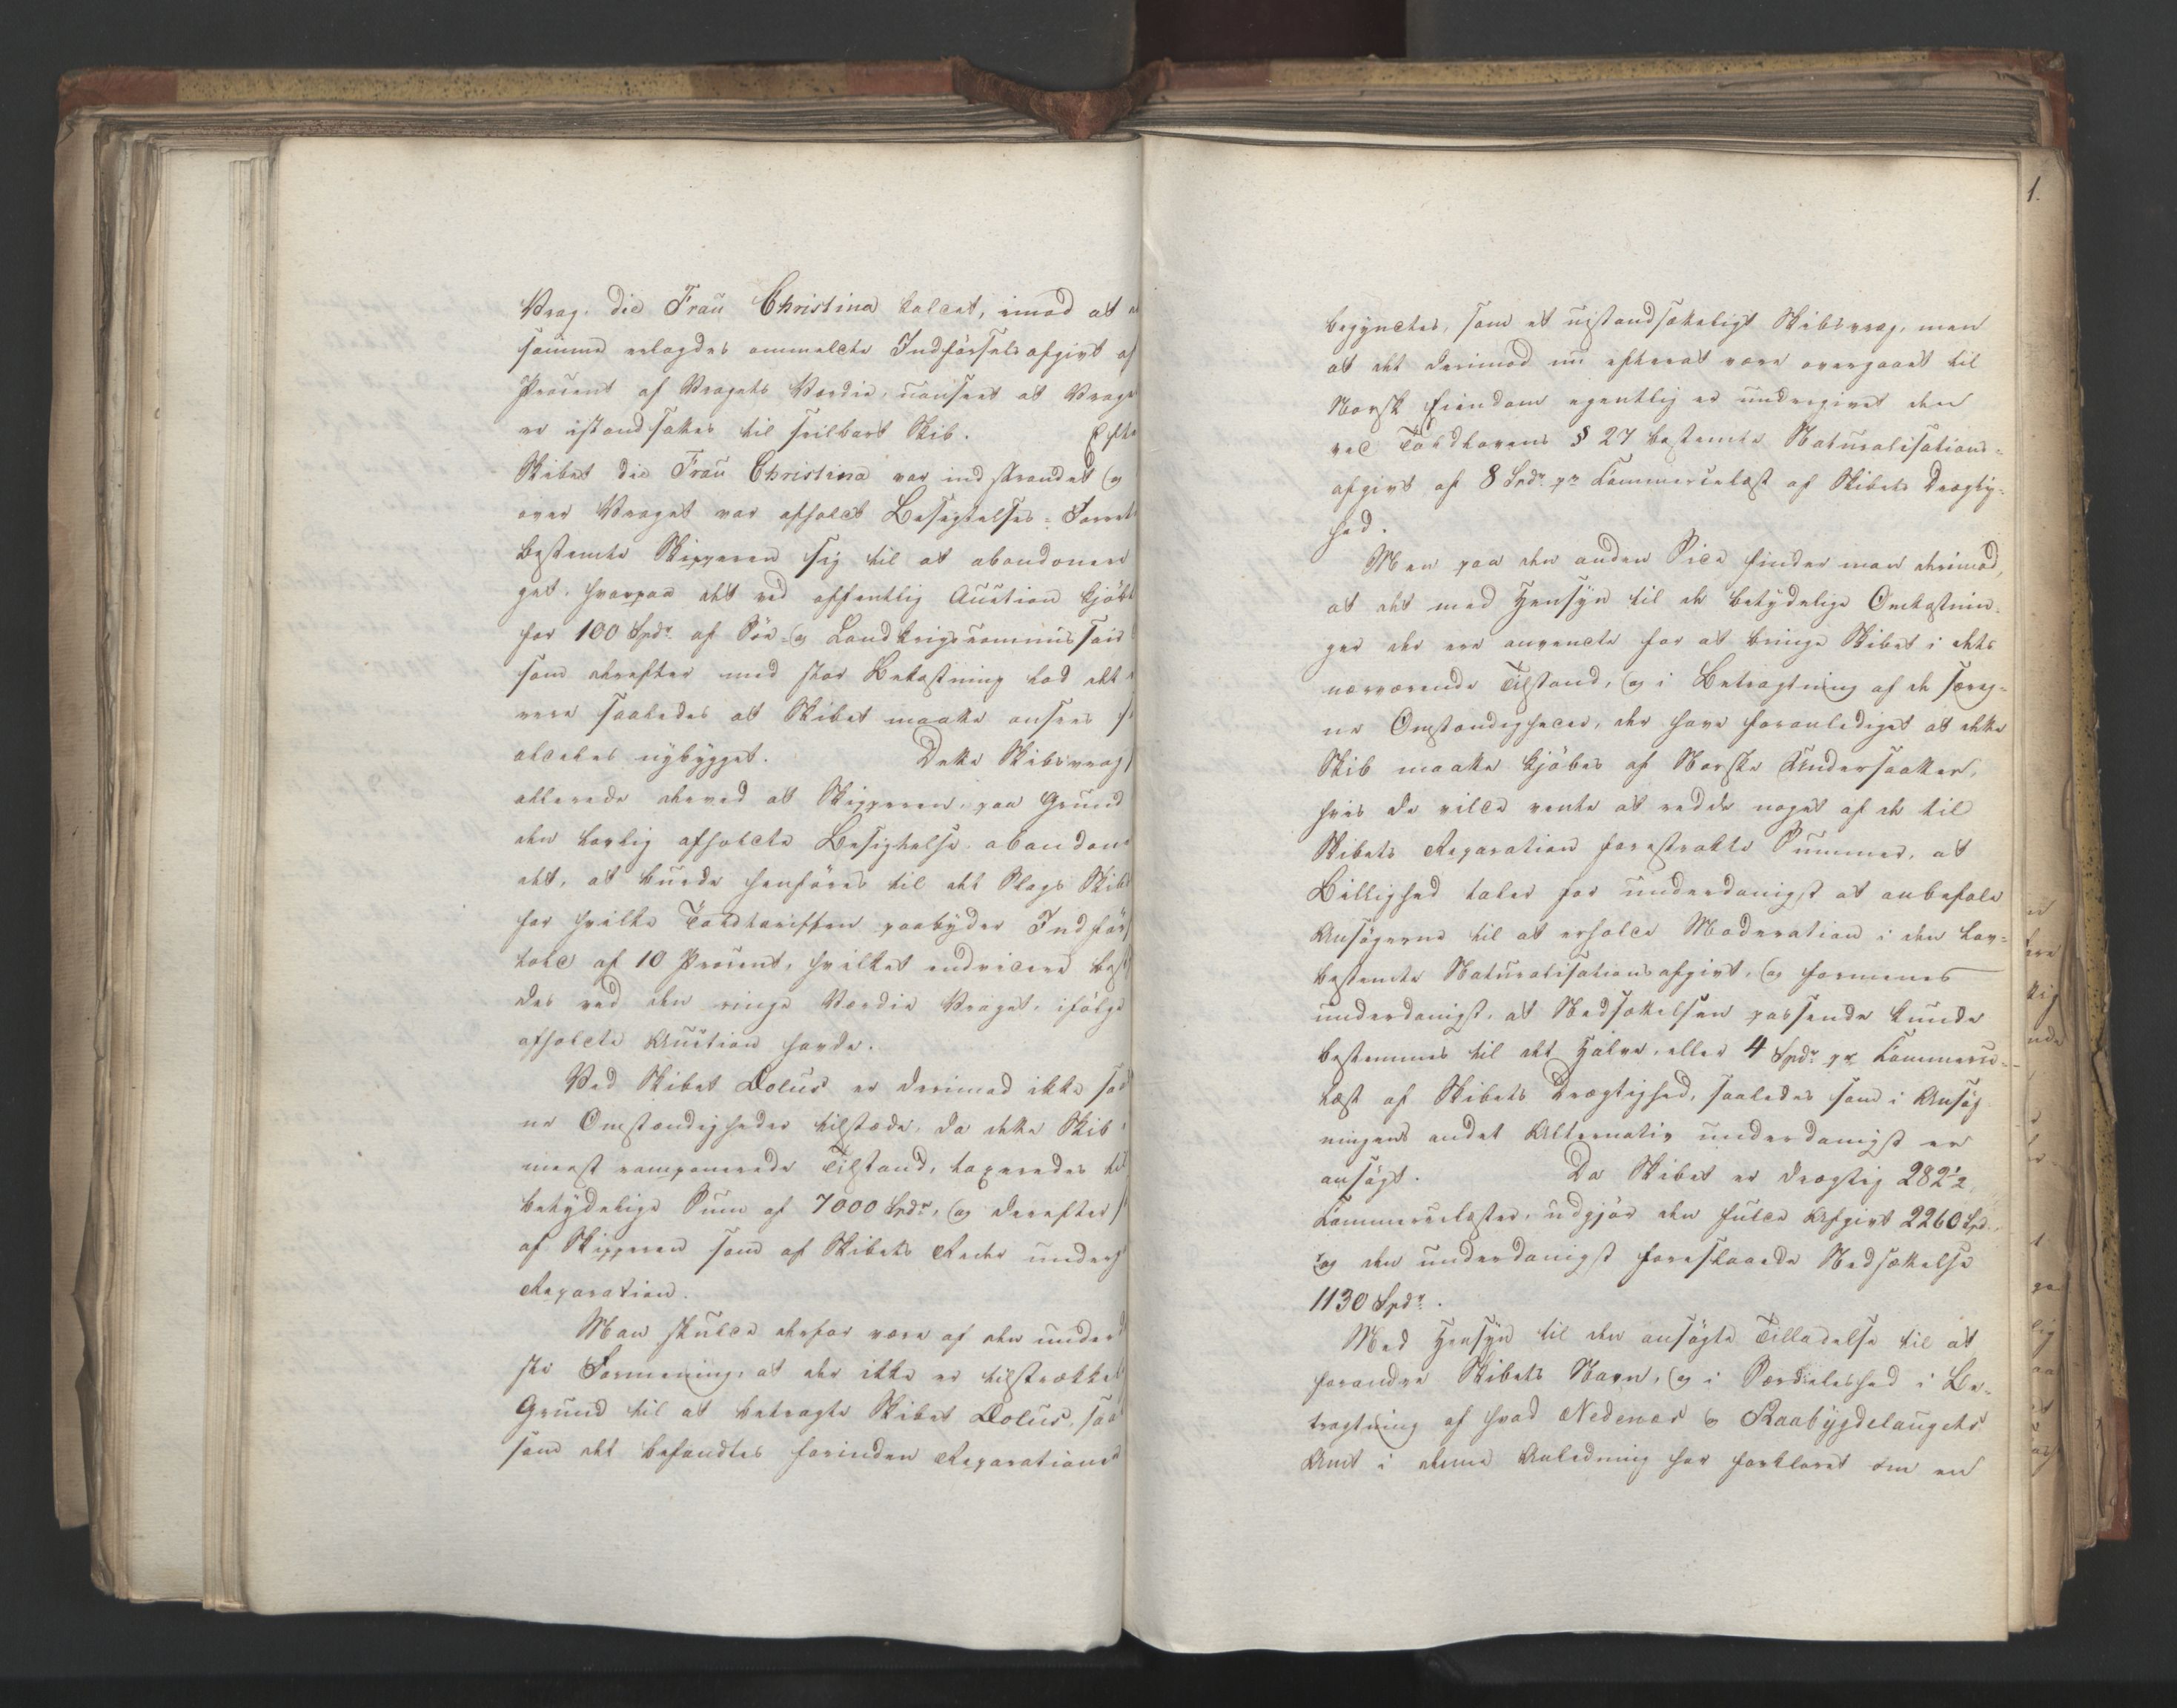 Vrag, die Frau Christina kaldet, imod at
samme erlagdes anmeldte Indførselsafgivt af
Procent af Vragets Værdie, uanseet at Vraget
er istandsattes til seilbart Skib. Efter
Skibet die Frau Christina var indstrandet og
over Vraget var afholdt Besigtelses-Forret
bestemte Skipperen sig til at abandonere
get, hvorpaa det ved offentlig Auction kjöbt
for 100 Spdr. af Söe- og Landkrigscommissair
som derefter med stor Bekostning lod det
rere saaledes at Skibet maatte ansees
aldeles nybygget. Dette Skibsvrag
allerede derved at Skipperen, paa Grund
den lovlig afholdte Besigtelse abandon
det, at burde henføres til det Slags Skibe
for hvilke Toldtariffen paabyder Indför
told af 10 Procent, hvilket endvidere best
des ved den ringe Værdie Vraget, ifölge
afholdte Auction havde.
Ved Skibet Dolus er derimod ikke saad
ne Omstændigheder tilstæde, da dette Skib i
meest ramponerede Tilstand, taxeredes til
betydelige Sum af 7000 Spdr., og derefter
af Skipperen som af Skibets Reder underg
Reparation.
Man skulde derfor være af den underd
ste Formening, at der ikke er tilstrækkel
Grund til at betragte Skibet Dolus, saa
som det befandtes forinden Reparationen
1.
begyndtes, som et uistandsætteligt Skibsvrag, men
at det derimod nu efterat være overgaaet til
Norsk Eiendom egentlig er undergivet den
ved Toldlovens § 27 bestemte Naturalisations-
afgivt af 8 Spdr. pr. Commercelæst af Skibets Drægtig-
hed.
Men paa den anden Side finder man derimod,
at det med Hensyn til de betydelige Omkostnin-
ger der ere anvendte for at bringe Skibet i dets
nærværende Tilstand, og i Betragtning af de særeg-
ne Omstændigheder, der have foranlediget at dette
Skib maatte kjöbes af Norske Undersaatter,
hvis de vilde vente at redde noget af de til
Skibets Reparation forestrakte Summer, at
Billighed taler for underdanigst at anbefale
Ansögerne til at erholde Moderation i den lov-
bestemte Naturalisationsafgivt, og formenes
underdanigst, at Nedsættelsen passende kunde
bestemmes til det Halve, eller 4 Spdr. pr. Commerce-
læst af Skibets Drægtighed, saaledes som i Ansög
ningens andet Alternativ underdanigst er
ansögt. Da Skibet er drægtig 282½
Commercelæster, udgjör den fulde Afgivt 2260 Spd.
og den underdanigst foreslaaede Nedsættelse
1130 Spdr.
Med Hensyn til den ansögte Tilladelse til at
forandre Skibets Navn, og i Særdeleshed i Be-
tragtning af hvad Nedenes og Raabygdelaugets
Amt i denne Anledning har forklaret om en